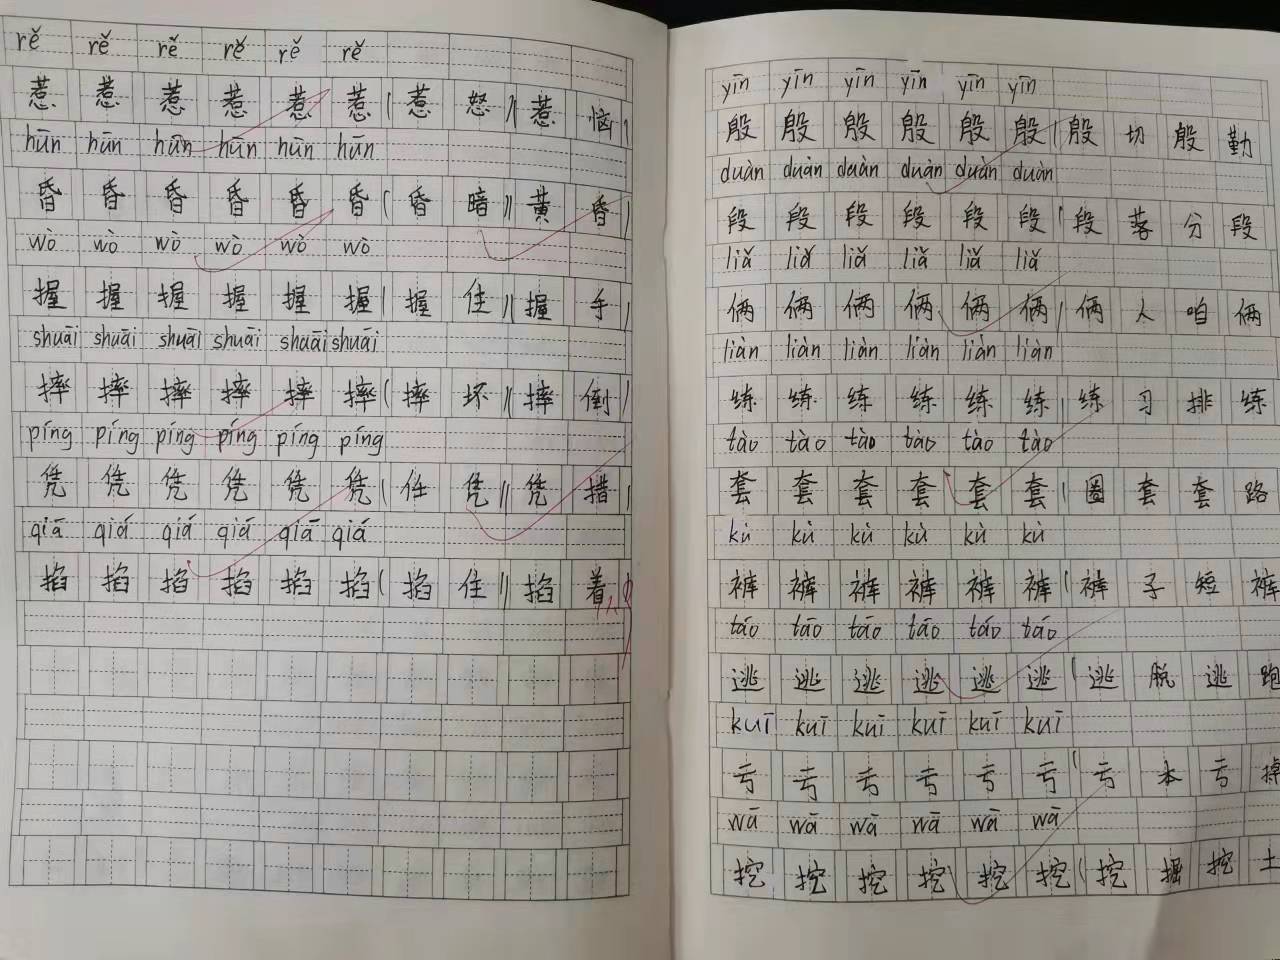 rě rě rě rě rě rě
惹 惹 惹 惹 惹 惹 ( 惹 怒 )( 惹 恼 )
hūn hūn hūn hūn hūn hūn
昏 昏 昏 昏 昏 昏 ( 昏 暗 )( 黄 昏 )
wò wò wò wò wò wò
握 握 握 握 握 握 ( 握 住 )( 握 手 )
shuāi shuāi shuāi shuāi shuāi shuāi
摔 摔 摔 摔 摔 摔 ( 摔 坏 )( 摔 倒 )
píng píng píng píng píng píng
凭 凭 凭 凭 凭 凭 ( 任 凭 )( 凭 措 )
qiā qiā qiā qiā qiā qiā
掐 掐 掐 掐 掐 掐 ( 掐 住 )( 掐 着 )
yīn yīn yīn yīn yīn yīn
殷 殷 殷 殷 殷 殷 ( 殷 切 殷 勤
duàn duàn duàn duàn duàn duàn
段 段 段 段 段 段 ( 段 落 分 段
liǎ liǎ liǎ liǎ liǎ liǎ
俩 俩 俩 俩 俩 俩 ( 俩 人 咱 俩
liàn liàn liàn liàn liàn liàn
练 练 练 练 练 练 ( 练 习 排 练
tào tào tào tào tào tào
套 套 套 套 套 套 ( 圈 套 套 路
kù kù kù kù kù kù
裤 裤 裤 裤 裤 裤 ( 裤 子 短 裤
táo táo táo táo táo táo
逃 逃 逃 逃 逃 逃 ( 逃 脱 逃 跑
kuī kuī kuī kuī kuī kuī
亏 亏 亏 亏 亏 亏 ( 亏 本 亏 掉
wā wā wā wā wā wā
挖 挖 挖 挖 挖 挖 ( 挖 掘 挖 土